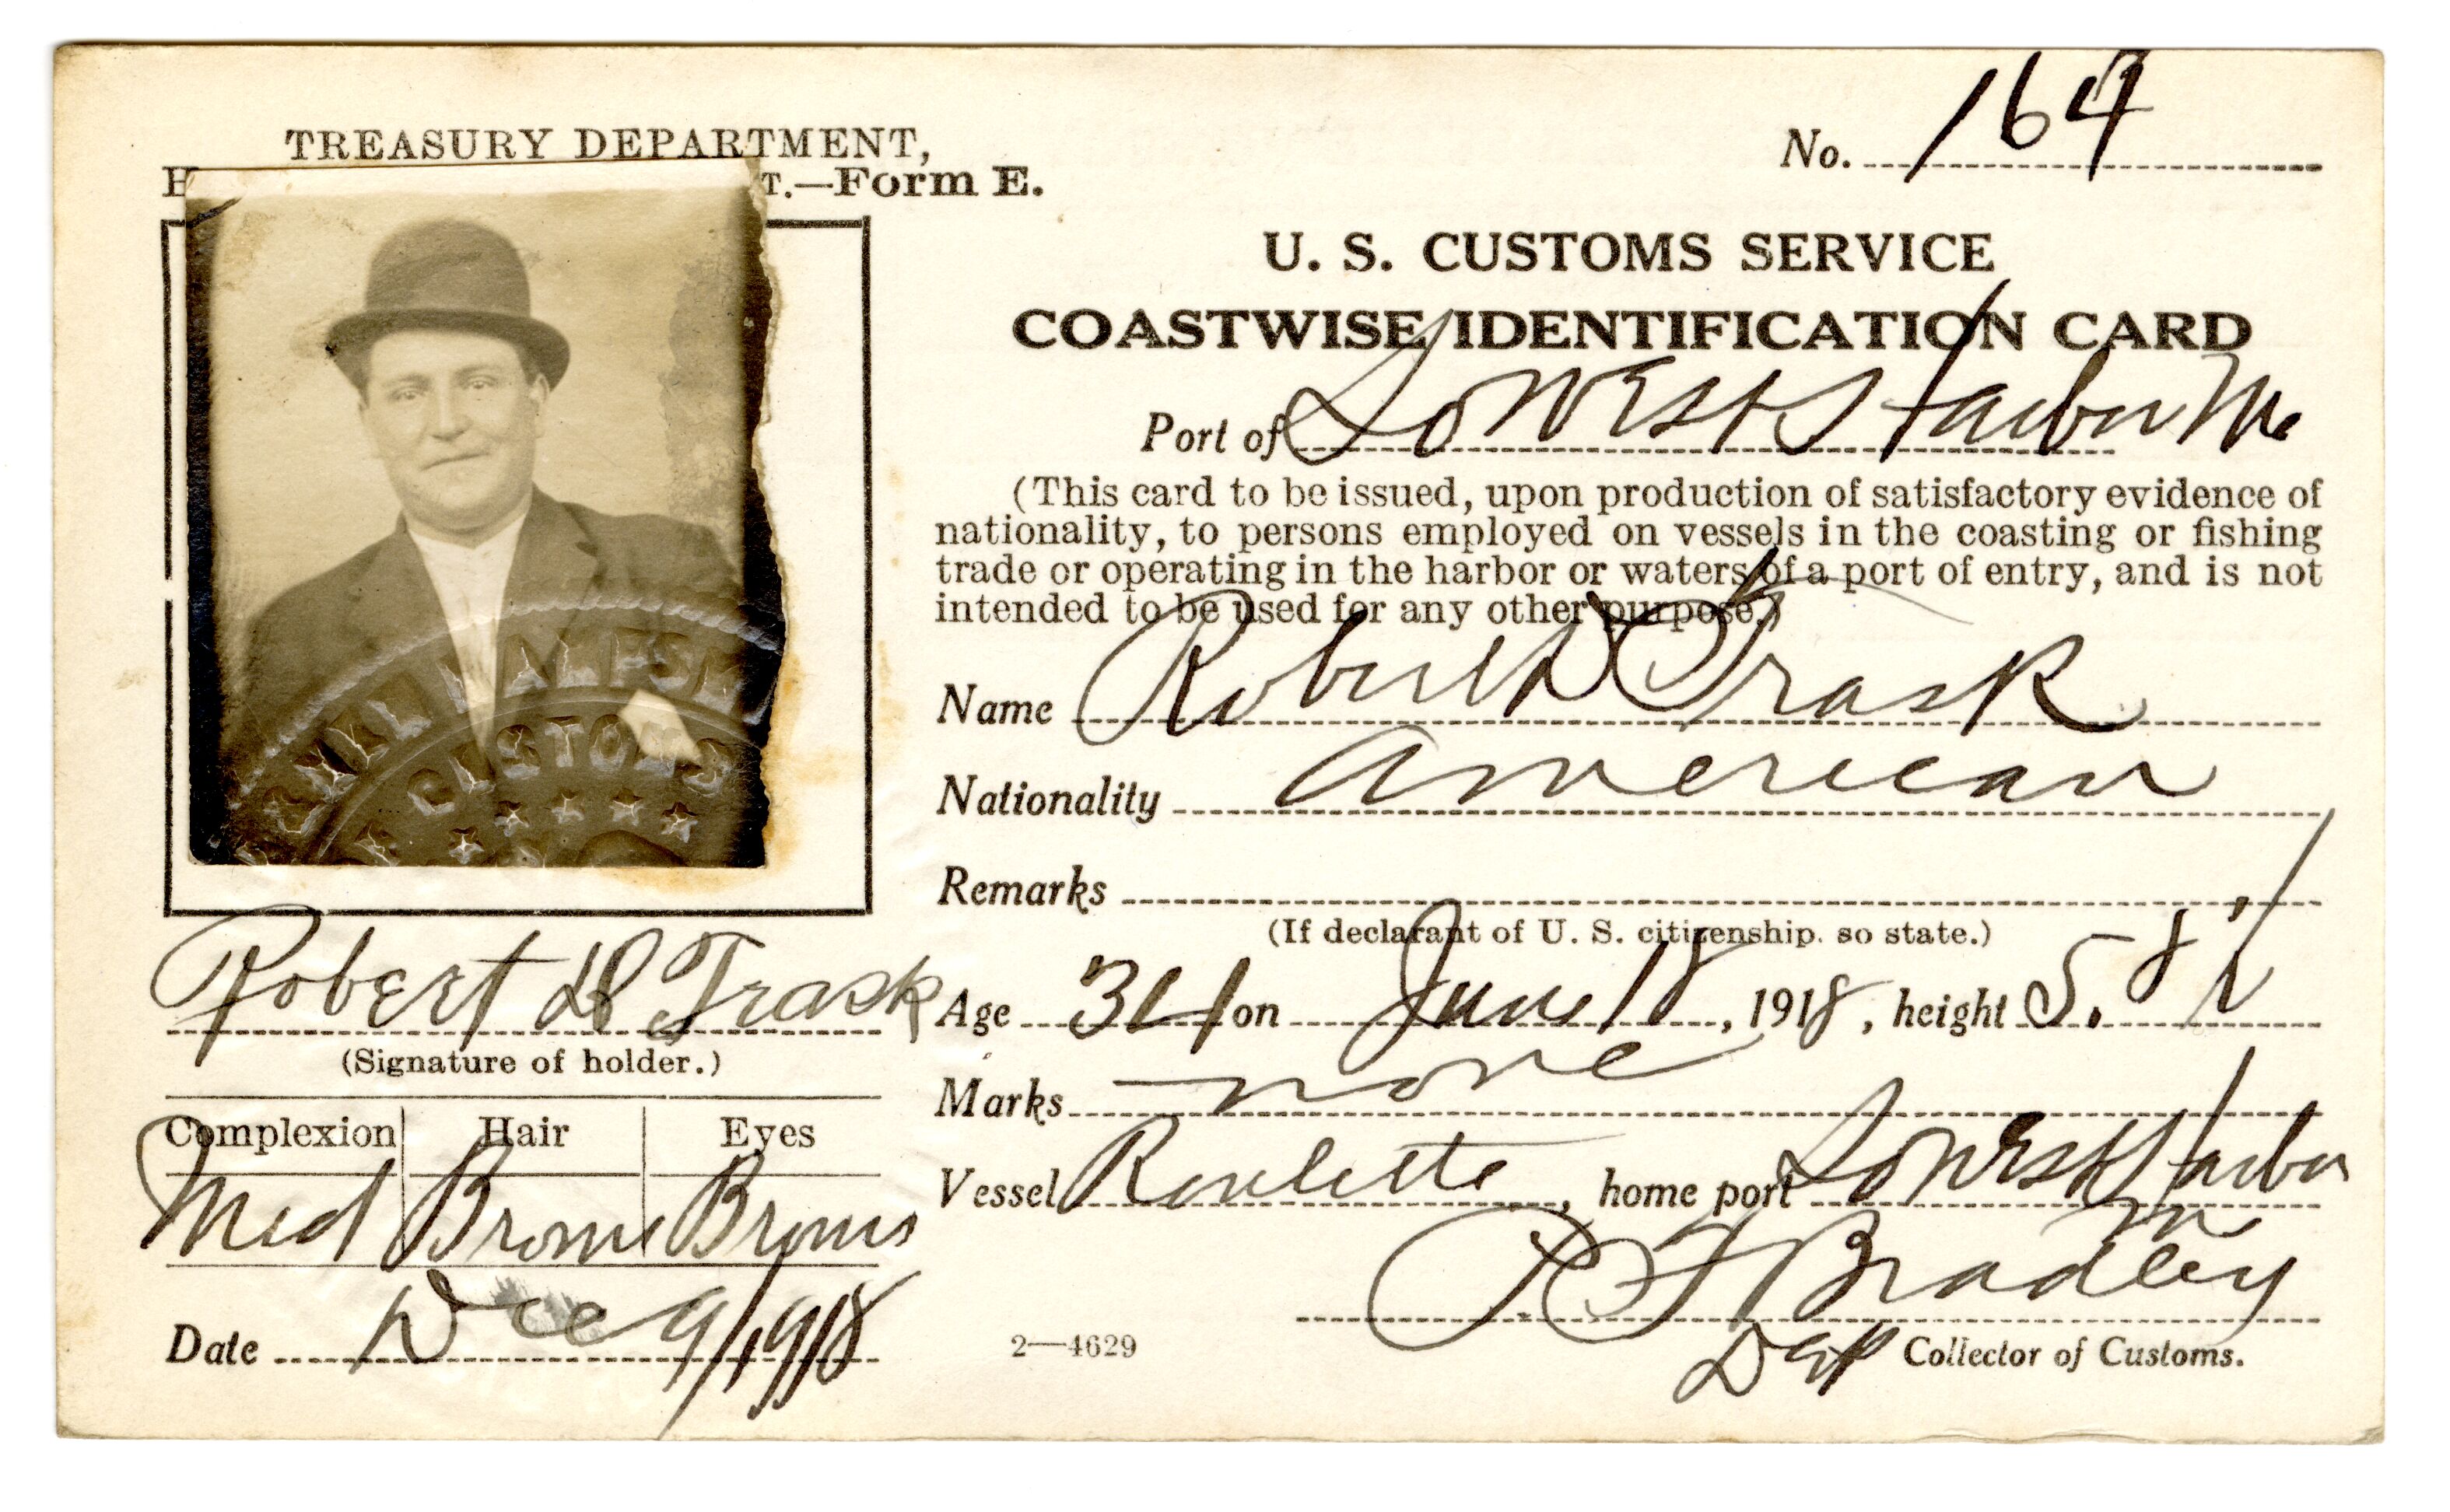 TREASURY DEPARTMENT,
T.—Form E.
No. 164
U. S. CUSTOMS SERVICE
COASTWISE IDENTIFICATION CARD
Port of So West Harbor Me
(This card to be issued, upon production of satisfactory evidence of
nationality, to persons employed on vessels in the coasting or fishing
trade or operating in the harbor or waters of a port of entry, and is not
intended to be used for any other purpose.)
Name Robert D Trask
Nationality American
Remarks
(If declarant of U. S. citizenship, so state.)
Age 34 on June 18, 1918, height 5. 8
Marks none
Vessel Roulette, home port So West Harbor
Me
R F Bradley
Dep Collector of Customs.
2—4629
CUSTOMS
Robert D Trask
(Signature of holder.)
Complexion Hair Eyes
Med Brown Brown
Date Dec 9/1918